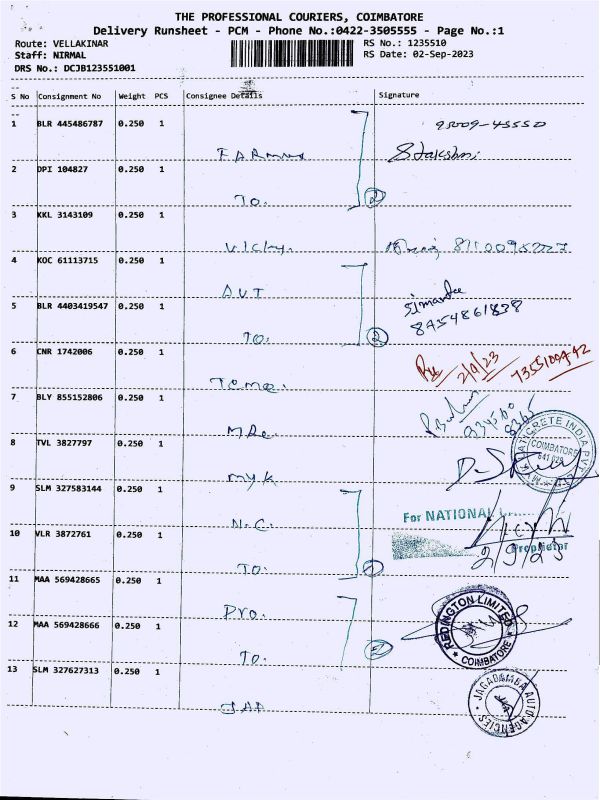 THE PROFESSIONAL COURIERS, COIMBATORE
Delivery Runsheet - PCM - Phone No.:0422-3505555 - Page No.:1
Route: VELLAKINAR RS No.: 1235510
Staff: NIRMAL RS Date: 02-Sep-2023
DRS No.: DCJB123551001
S No Consignment No Weight PCS Consignee Details Signature
1 BLR 445486787 0.250 1
2 DPI 104827 0.250 1
To. 2
3 KKL 3143109 0.250 1
Vicky.
4 KOC 61113715 0.250 1
AVT
5 BLR 4403419547 0.250 1
8454861838
To. 2
6 CNR 1742006 0.250 1
2/9/23
7 BLY 855152806 0.250 1
8 TVL 3827797 0.250 1
COIMBATORE
myk
9 SLM 327583144 0.250 1
N.C.
For NATIONAL
10 VLR 3872761 0.250 1
Proprietor
2/9/23
To.
11 MAA 569428665 0.250 1
Pro.
REDINGTON LIMITED
COIMBATORE
12 MAA 569428666 0.250 1
To.
13 SLM 327627313 0.250 1
JAGADAMBA AUTO AGENCIES